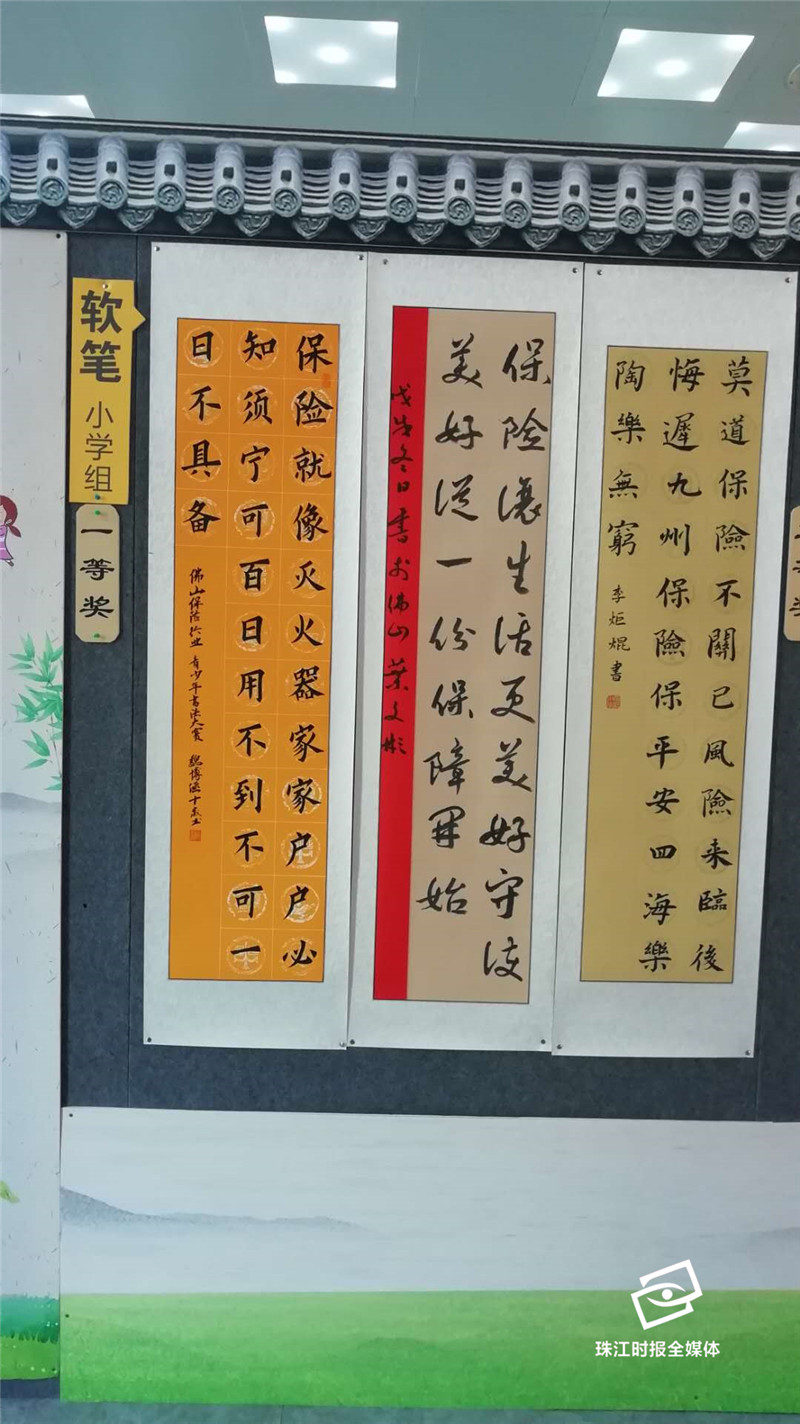 软笔
小学组
一等奖
莫道保險不關已風險来臨後
悔遲九州保險保平安四海樂
陶樂無窮
李炬焜書
保险讓生活更美好守護
美好從一份保障開始
戊戌冬日書於佛山葉文彬
保险就像灭火器家家户户必
知须宁可百日用不到不可一
日不具备
佛山保险行业 青少年书法大赛 魏博涵十歲书
珠江时报全媒体